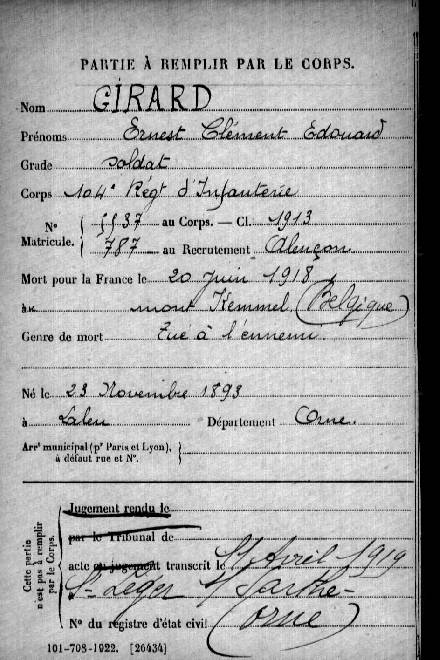 PARTIE À REMPLIR PAR LE CORPS.
Nom GIRARD
Prénoms Ernest Clément Edouard
Grade soldat
Corps 104e Régt d'Infanterie
N° Matricule. 5537 au Corps. — Cl. 1913
787 au Recrutement Alençon
Mort pour la France le 20 Juin 1918
à mont Kemmel (Belgique)
Genre de mort Tué à l'ennemi
Né le 23 Novembre 1893
à Laleu Département Orne.
Arrt municipal (pr Paris et Lyon),
à défaut rue et N°.
Cette partie
n'est pas à remplir
par le Corps.
Jugement rendu le
par le Tribunal de
acte ou jugement transcrit le Avril 1919
St Léger s/ Sarthe -
(orne)
N° du registre d'état civil
101-708-1922. [26434]